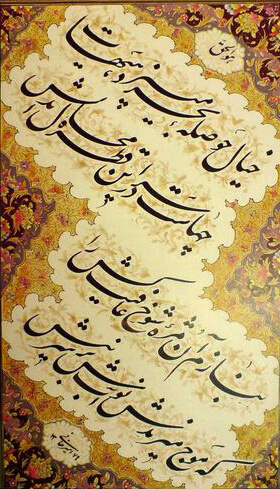 هوالحق
خیال حوصله بحر میپزد هیهات
چهاست در سر این قطره محال اندیش
بنازم آن مژه شوخ عافیت کش را
که موج میزندش آب نوش بر سر نیش